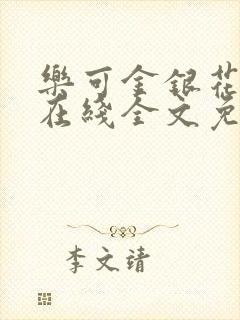 樂可金銀花
在綫全文免
李文靖